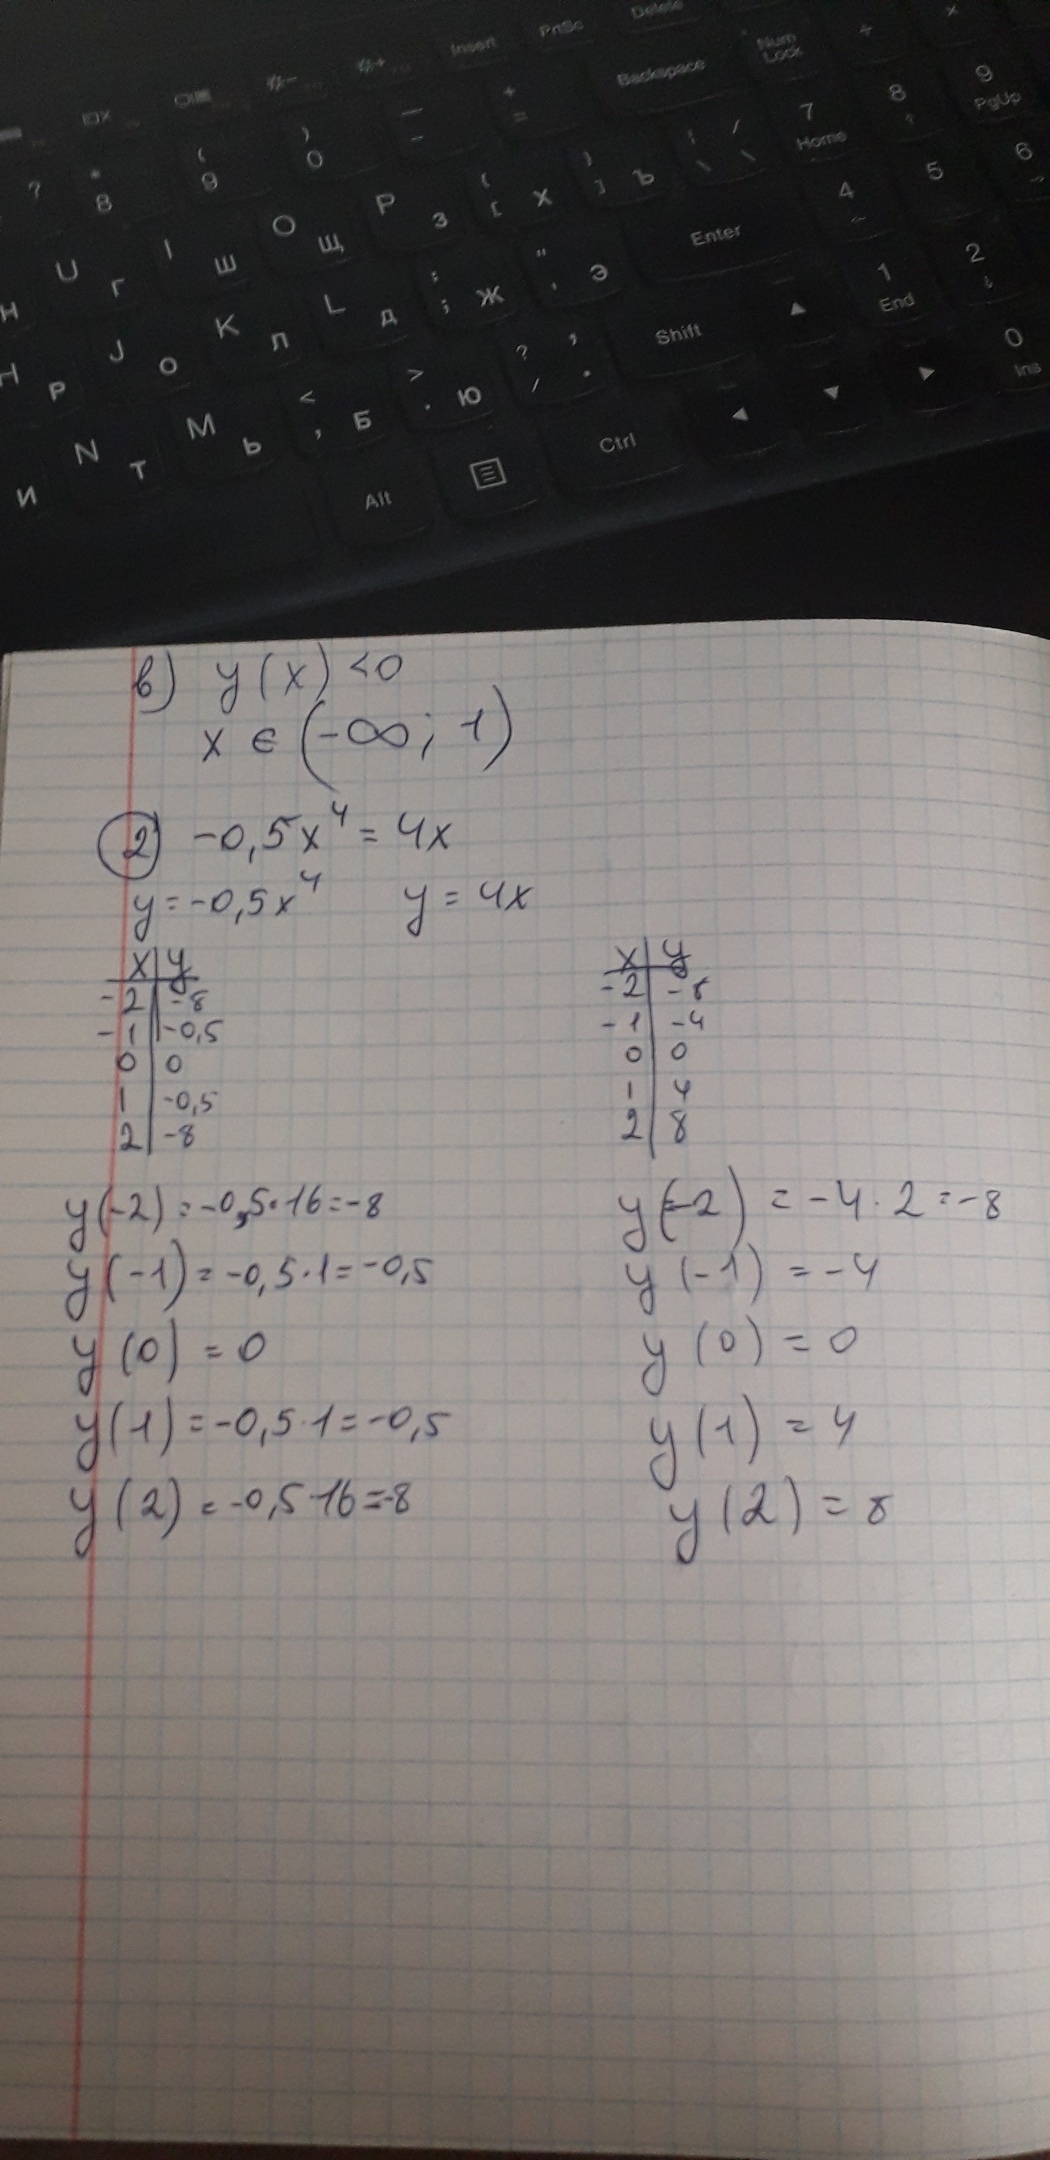 Insert PrtSc Delete
Backspace Num Lock
? * 8 ( 9 ) 0 — - + = 7 Home 8 9 PgUp
U Г I Ш O Щ P З { [ Х } ] Ъ | / \ \ 4 5 6
Н J О K Л L Д : ; Ж " ' Э Enter 1 End 2
Р N Т M Ь < , Б > . Ю ? / , . Shift 0 Ins
И Alt Ctrl
в) y(x) <0
x ∈ (-∞; 1)
2) -0,5x⁴ = 4x
y = -0,5x⁴ y = 4x
x | y x | y
-2 | -8 -2 | -8
-1 | -0,5 -1 | -4
0 | 0 0 | 0
1 | -0,5 1 | 4
2 | -8 2 | 8
y(-2) = -0,5·16 = -8 y(-2) = -4·2 = -8
y(-1) = -0,5·1 = -0,5 y(-1) = -4
y(0) = 0 y(0) = 0
y(1) = -0,5·1 = -0,5 y(1) = 4
y(2) = -0,5·16 = -8 y(2) = 8